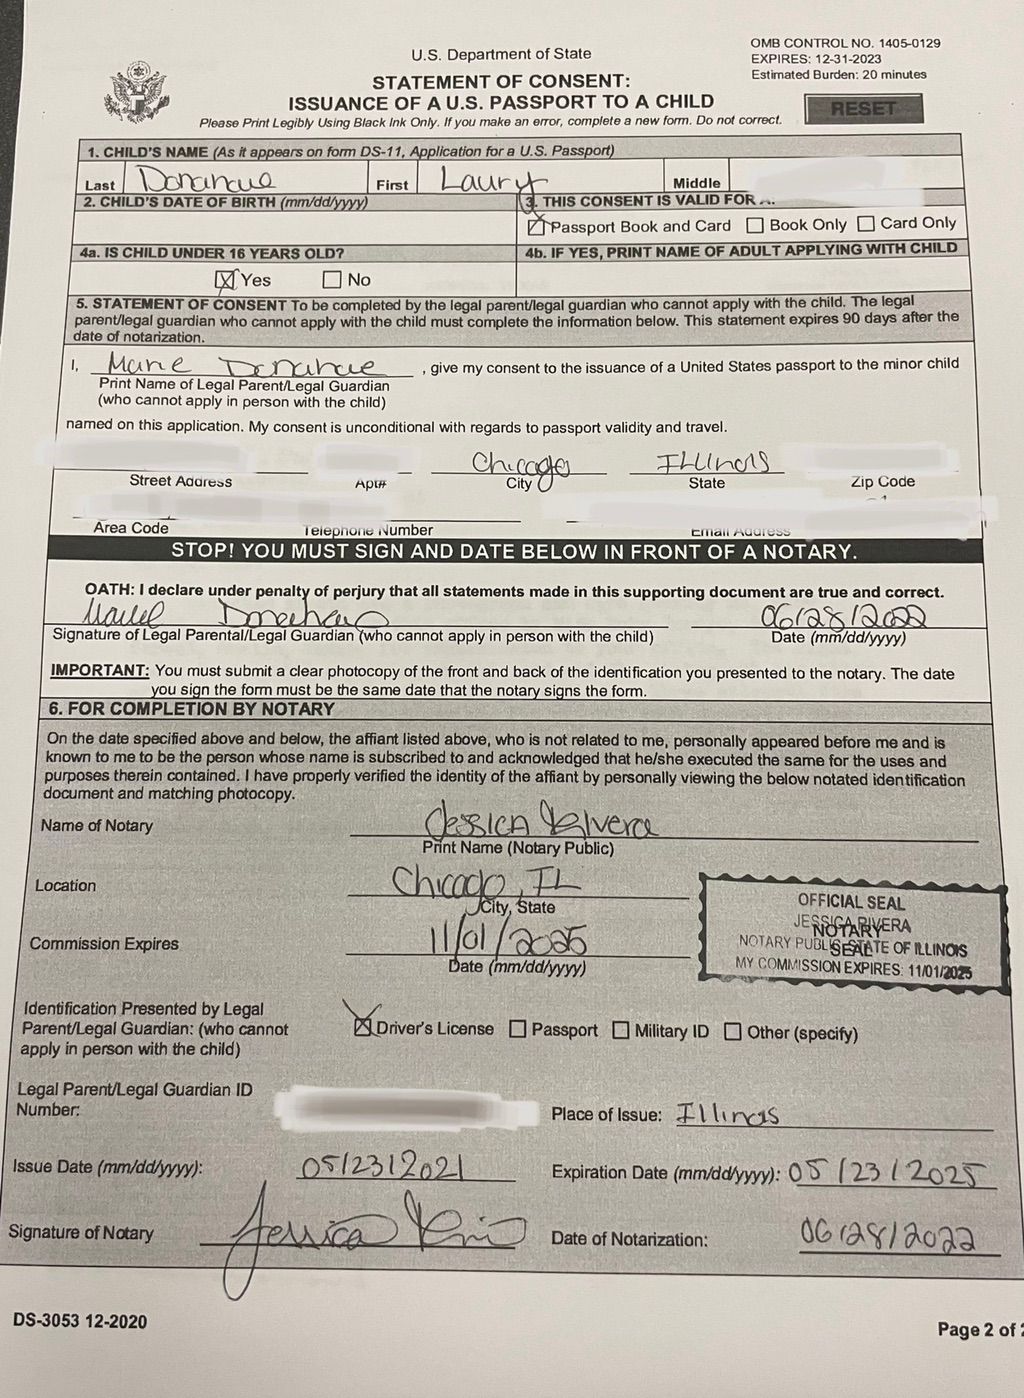 U.S. Department of State
OMB CONTROL NO. 1405-0129
EXPIRES: 12-31-2023
Estimated Burden: 20 minutes
STATEMENT OF CONSENT:
ISSUANCE OF A U.S. PASSPORT TO A CHILD
RESET
Please Print Legibly Using Black Ink Only. If you make an error, complete a new form. Do not correct.
1. CHILD'S NAME (As it appears on form DS-11, Application for a U.S. Passport)
Last Donahue First Laury Middle
2. CHILD'S DATE OF BIRTH (mm/dd/yyyy)
3. THIS CONSENT IS VALID FOR
Passport Book and Card Book Only Card Only
4a. IS CHILD UNDER 16 YEARS OLD?
Yes No
4b. IF YES, PRINT NAME OF ADULT APPLYING WITH CHILD
5. STATEMENT OF CONSENT To be completed by the legal parent/legal guardian who cannot apply with the child. The legal
parent/legal guardian who cannot apply with the child must complete the information below. This statement expires 90 days after the
date of notarization.
I, Marie Donahue , give my consent to the issuance of a United States passport to the minor child
Print Name of Legal Parent/Legal Guardian
(who cannot apply in person with the child)
named on this application. My consent is unconditional with regards to passport validity and travel.
Chicago ILLinois
Street Address Apt# City State Zip Code
Area Code Telephone Number Email Address
STOP! YOU MUST SIGN AND DATE BELOW IN FRONT OF A NOTARY.
OATH: I declare under penalty of perjury that all statements made in this supporting document are true and correct.
06/28/2022
Signature of Legal Parental/Legal Guardian (who cannot apply in person with the child) Date (mm/dd/yyyy)
IMPORTANT: You must submit a clear photocopy of the front and back of the identification you presented to the notary. The date
you sign the form must be the same date that the notary signs the form.
6. FOR COMPLETION BY NOTARY
On the date specified above and below, the affiant listed above, who is not related to me, personally appeared before me and is
known to me to be the person whose name is subscribed to and acknowledged that he/she executed the same for the uses and
purposes therein contained. I have properly verified the identity of the affiant by personally viewing the below notated identification
document and matching photocopy.
Name of Notary Jessica Rivera
Print Name (Notary Public)
Location Chicago, IL
City, State
Commission Expires 11/01/2025
Date (mm/dd/yyyy)
OFFICIAL SEAL
JESSICA RIVERA
NOTARY
NOTARY PUBLIC STATE OF ILLINOIS
SEAL
MY COMMISSION EXPIRES: 11/01/2025
Identification Presented by Legal
Parent/Legal Guardian: (who cannot
apply in person with the child)
Driver's License Passport Military ID Other (specify)
Legal Parent/Legal Guardian ID
Number:
Place of Issue: Illinois
Issue Date (mm/dd/yyyy): 05/23/2021 Expiration Date (mm/dd/yyyy): 05/23/2025
Signature of Notary Jessica Date of Notarization: 06/28/2022
DS-3053 12-2020
Page 2 of